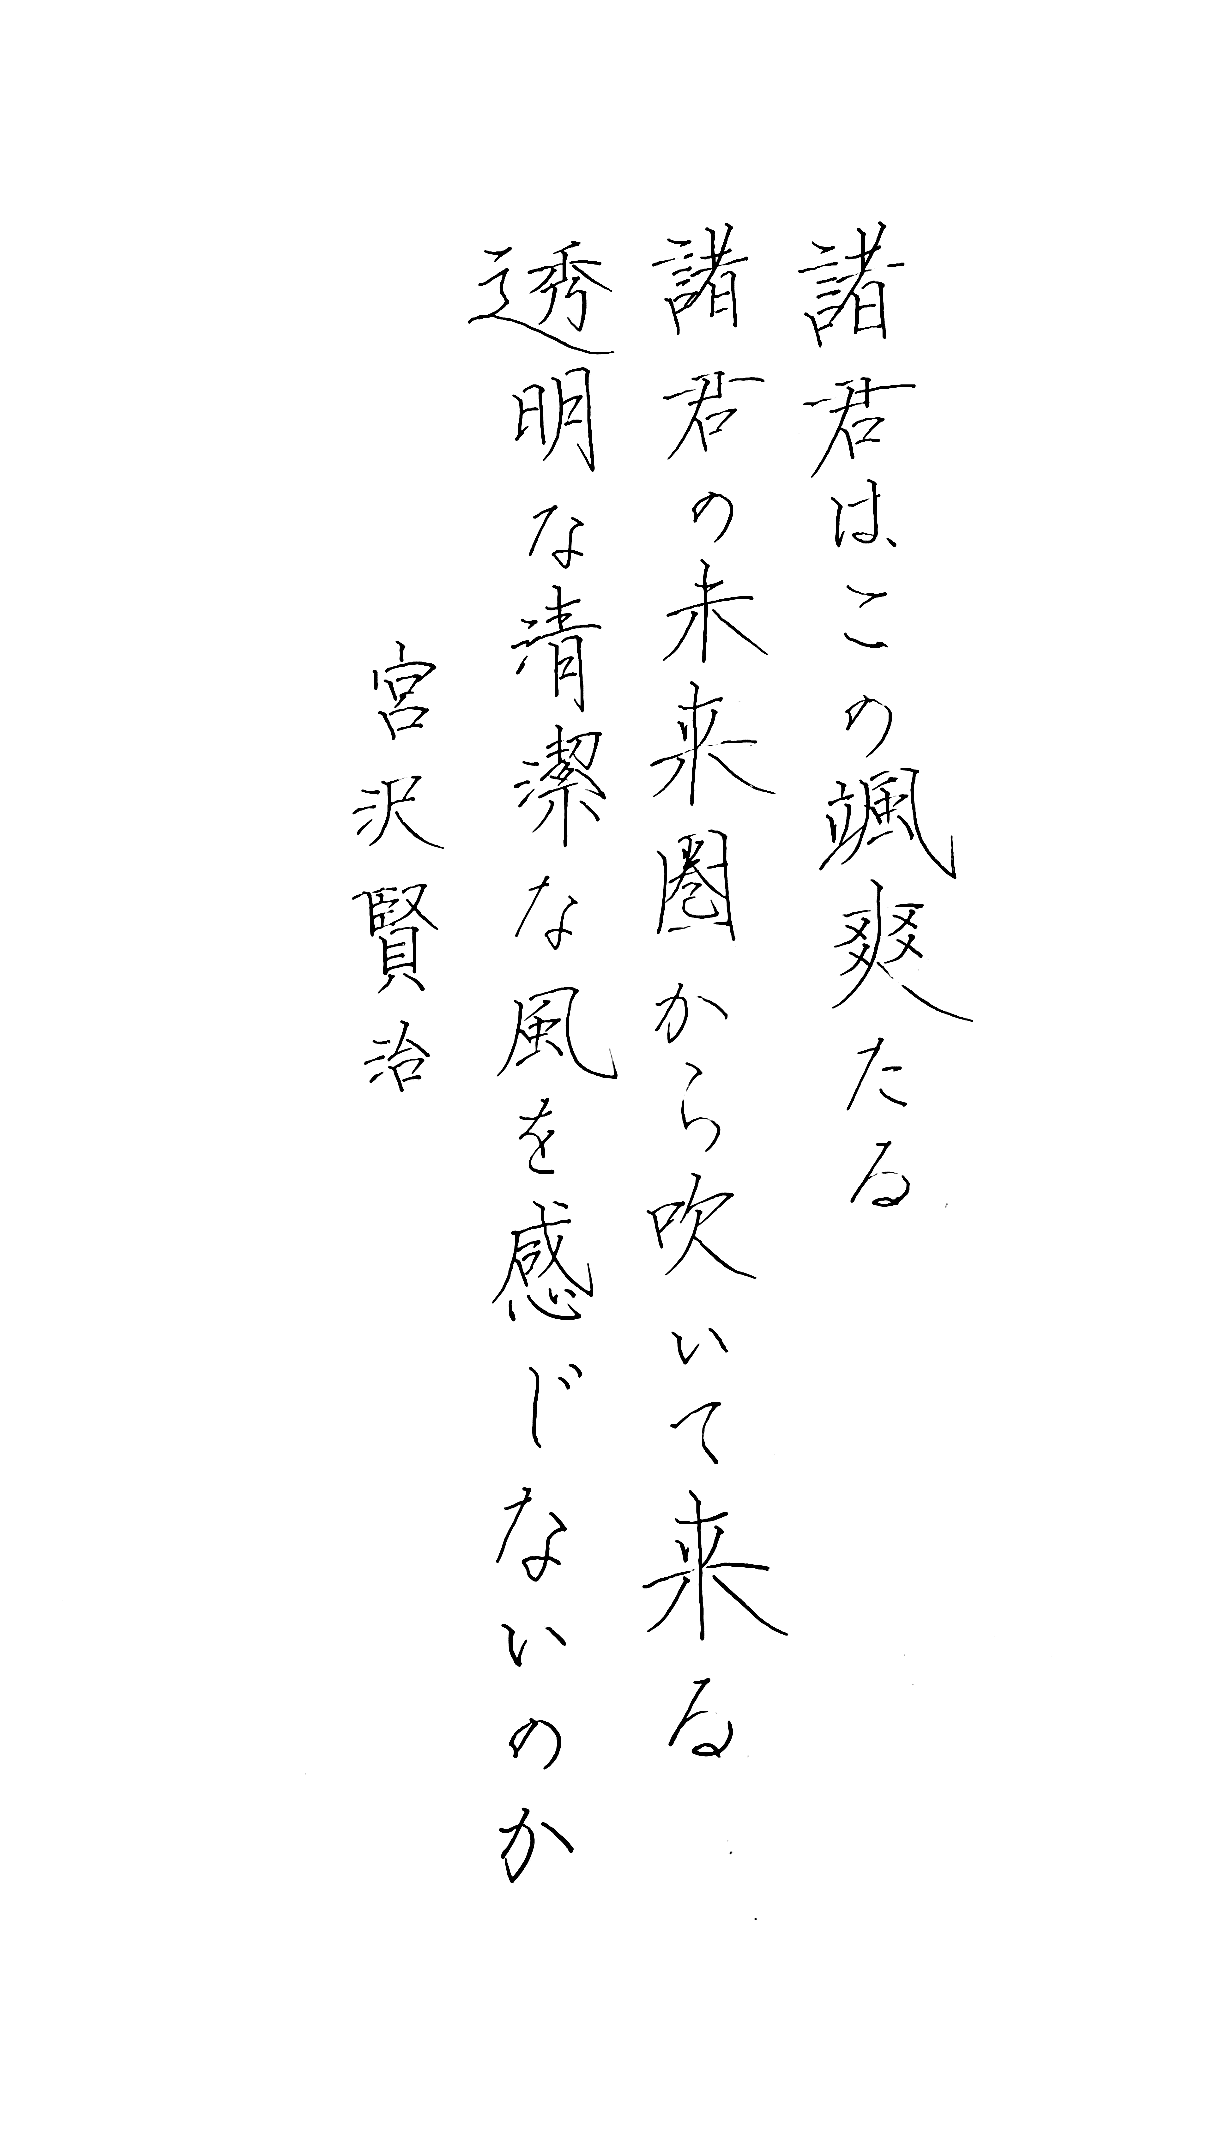 諸君はこの颯爽たる
諸君の未来圏から吹いて来る
透明な清潔な風を感じないのか
宮沢賢治